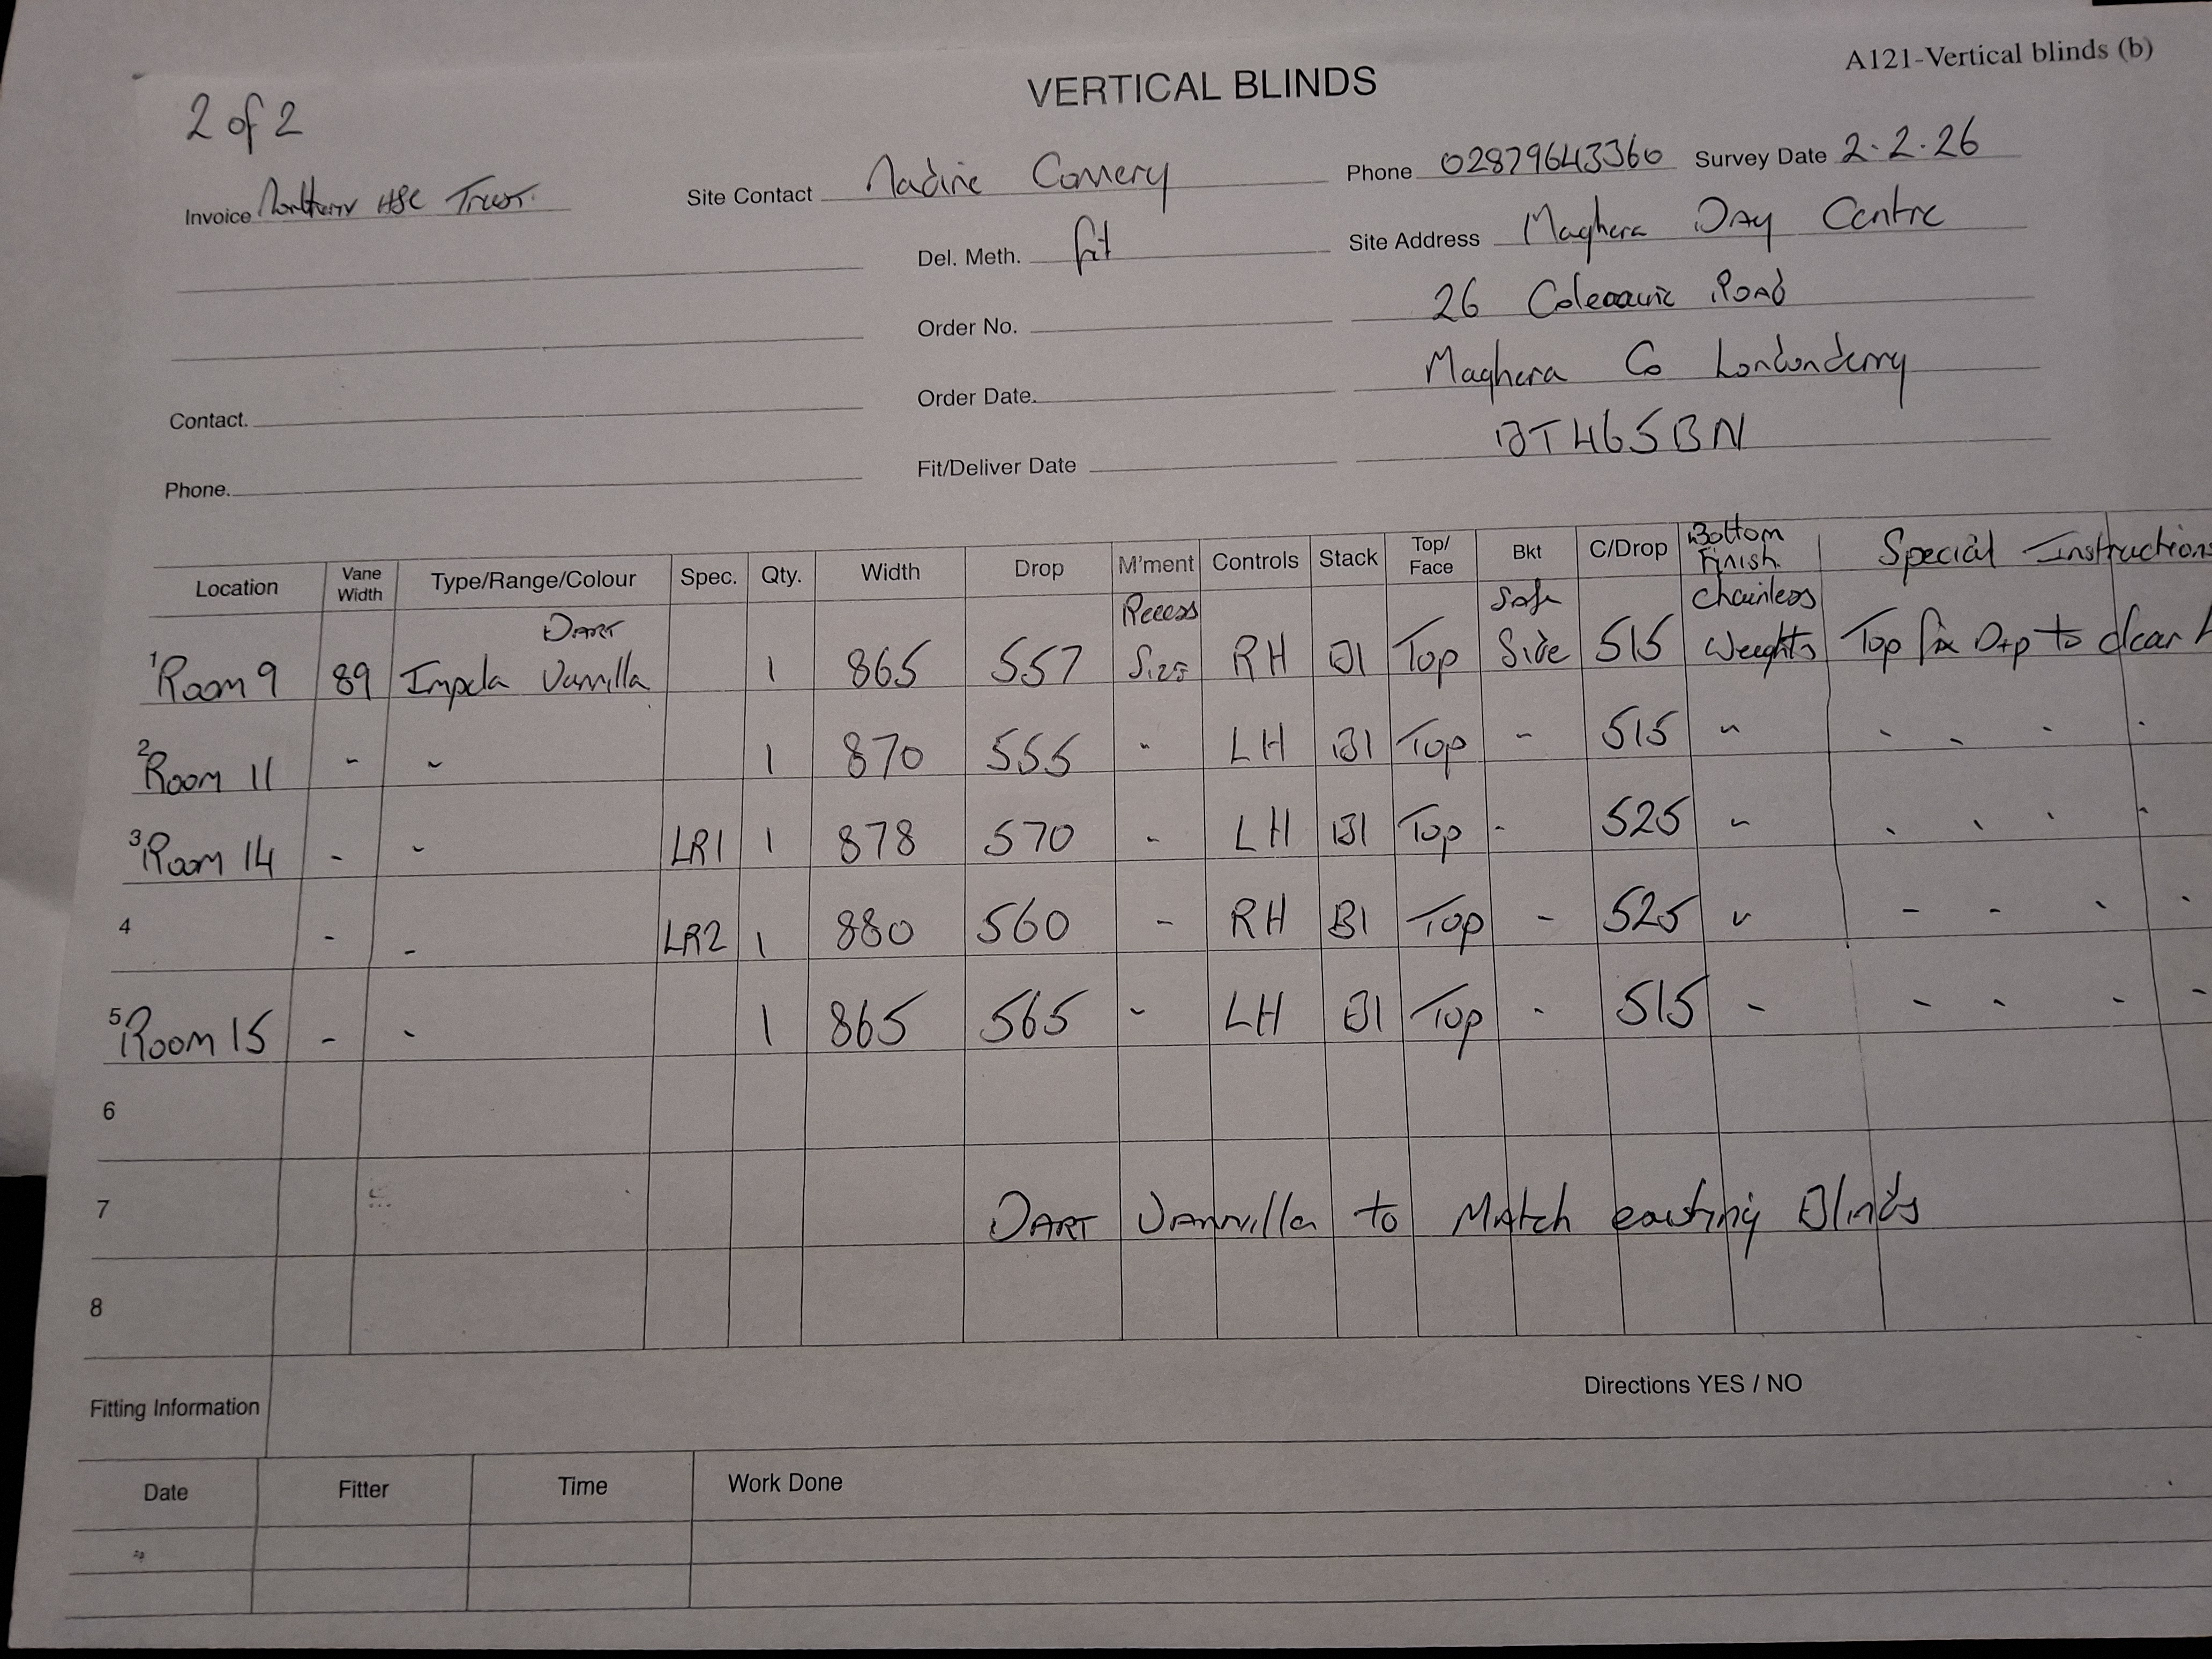 A121-Vertical blinds (b)
VERTICAL BLINDS
2 of 2
Invoice Northern HSC Trust.
Site Contact Nadine Convery
Phone 02879643360 Survey Date 2.2.26
Del. Meth. fit
Site Address Maghera Day Centre
Order No.
26 Coleraine Road
Order Date.
Maghera Co Londonderry
Contact.
Fit/Deliver Date
BT465BN
Phone.
Location Vane Width Type/Range/Colour Spec. Qty. Width Drop M'ment Controls Stack Top/Face Bkt C/Drop Bottom Finish Special Instructions
1 Room 9 89 Impela Dart Vannilla 1 865 557 Recess Size RH B1 Top Safe Side 515 Chainless Weights Top fix Drp to clear
2 Room 11 - - 1 870 555 - LH B1 Top - 515 - - - - -
3 Room 14 - - LR1 1 878 570 - LH B1 Top - 525 - - - - -
4 - - LR2 1 880 560 - RH B1 Top - 525 - - - - -
5 Room 15 - - 1 865 565 - LH B1 Top - 515 - - - - -
6
7 Dart Vannilla to Match existing Blinds
8
Fitting Information Directions YES / NO
Date Fitter Time Work Done